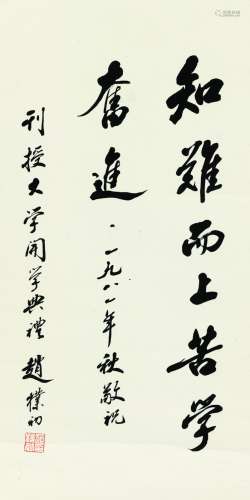 知難而上苦学
奮進．一九八一年秋敬祝
刊授大学開学典禮 趙樸初